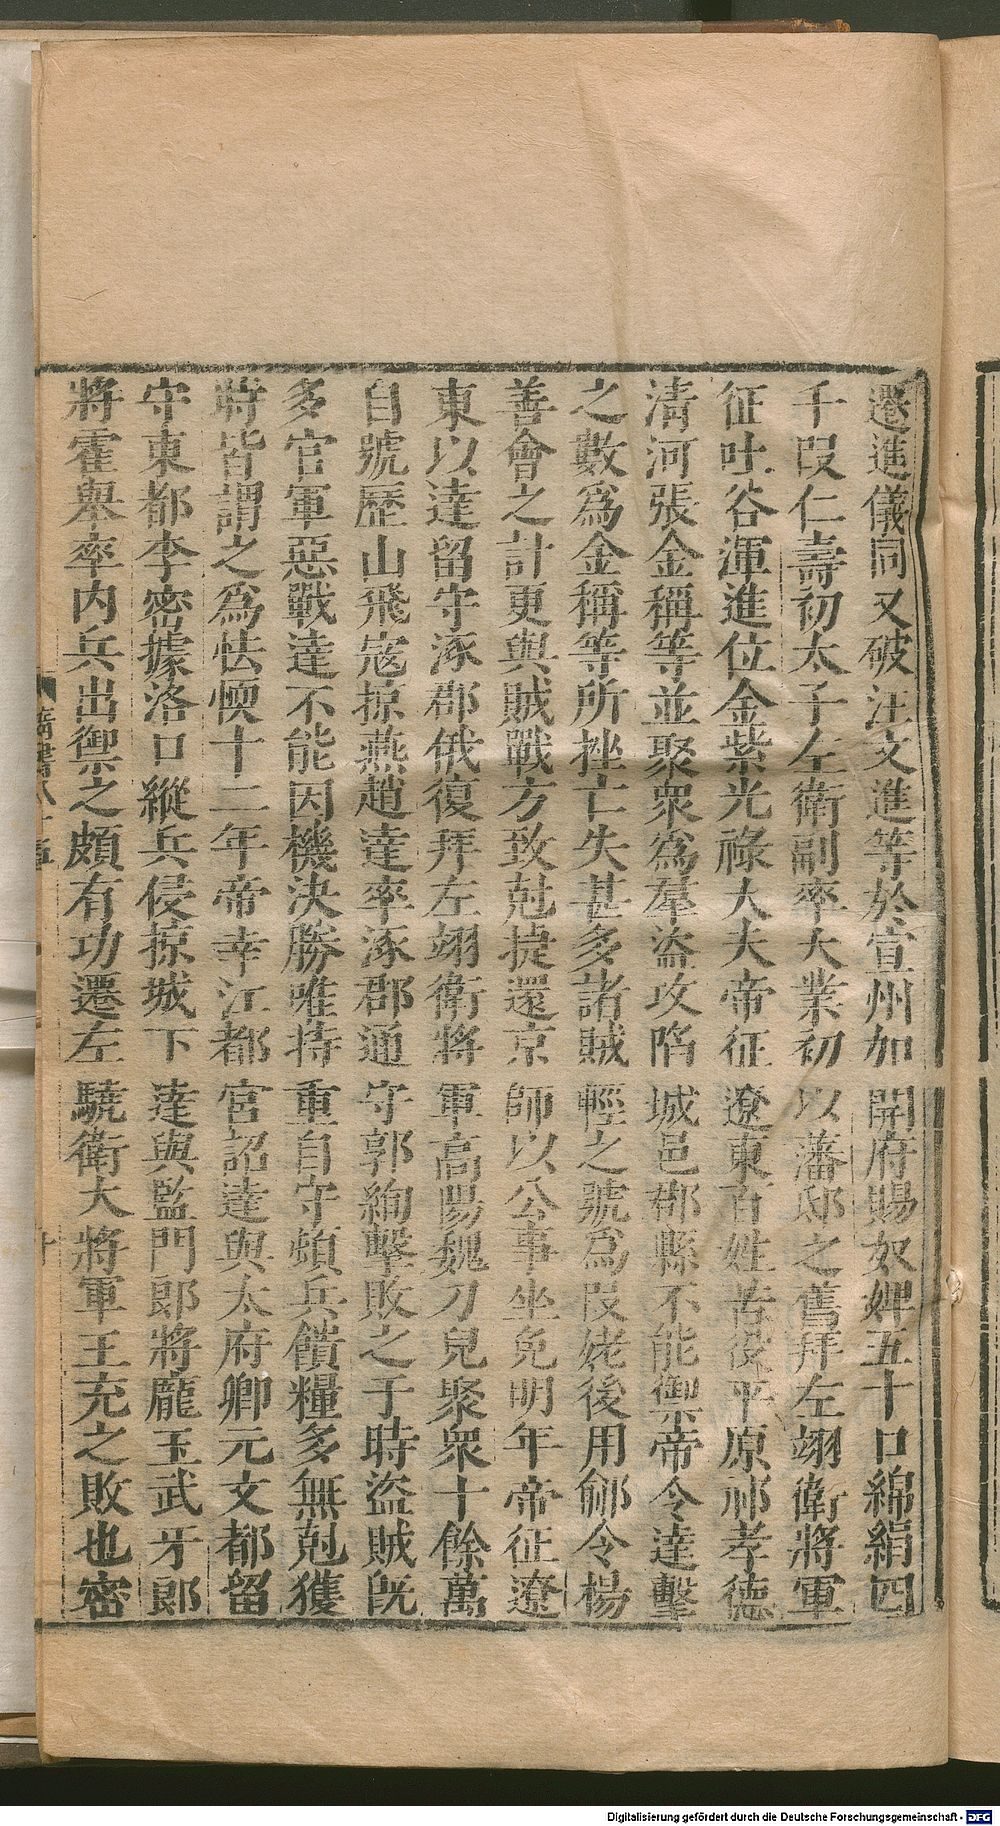 遷進儀同又破汪文進等於宣州加開府賜奴婢五十口綿絹四
千段仁壽初太子左衛副率大業初以藩邸之舊拜左翊衛將軍
征吐谷渾進位金紫光祿大夫帝征遼東百姓苦役平原祁孝德
清河張金稱等並聚衆爲羣盜攻陷城邑郡縣不能禦帝令達擊
之數爲金稱等所挫亡失甚多諸賊輕之號爲段姥後用鄃令楊
善會之計更與賊戰方致尅捷還京師以公事坐免明年帝征遼
東以達留守涿郡俄復拜左翊衛將軍高陽魏刀兒聚衆十餘萬
自號歷山飛寇掠燕趙達率涿郡通守郭絢擊敗之于時盜賊旣
多官軍惡戰達不能因機決勝唯持重自守頓兵饋糧多無尅獲
時皆謂之爲怯愞十二年帝幸江都宮詔達與太府卿元文都留
守東都李密據洛口縱兵侵掠城下達與監門郎將龐玉武牙郎
將霍舉率內兵出禦之頗有功遷左驍衛大將軍王充之敗也密
Digitalisierung gefördert durch die Deutsche Forschungsgemeinschaft - DFG